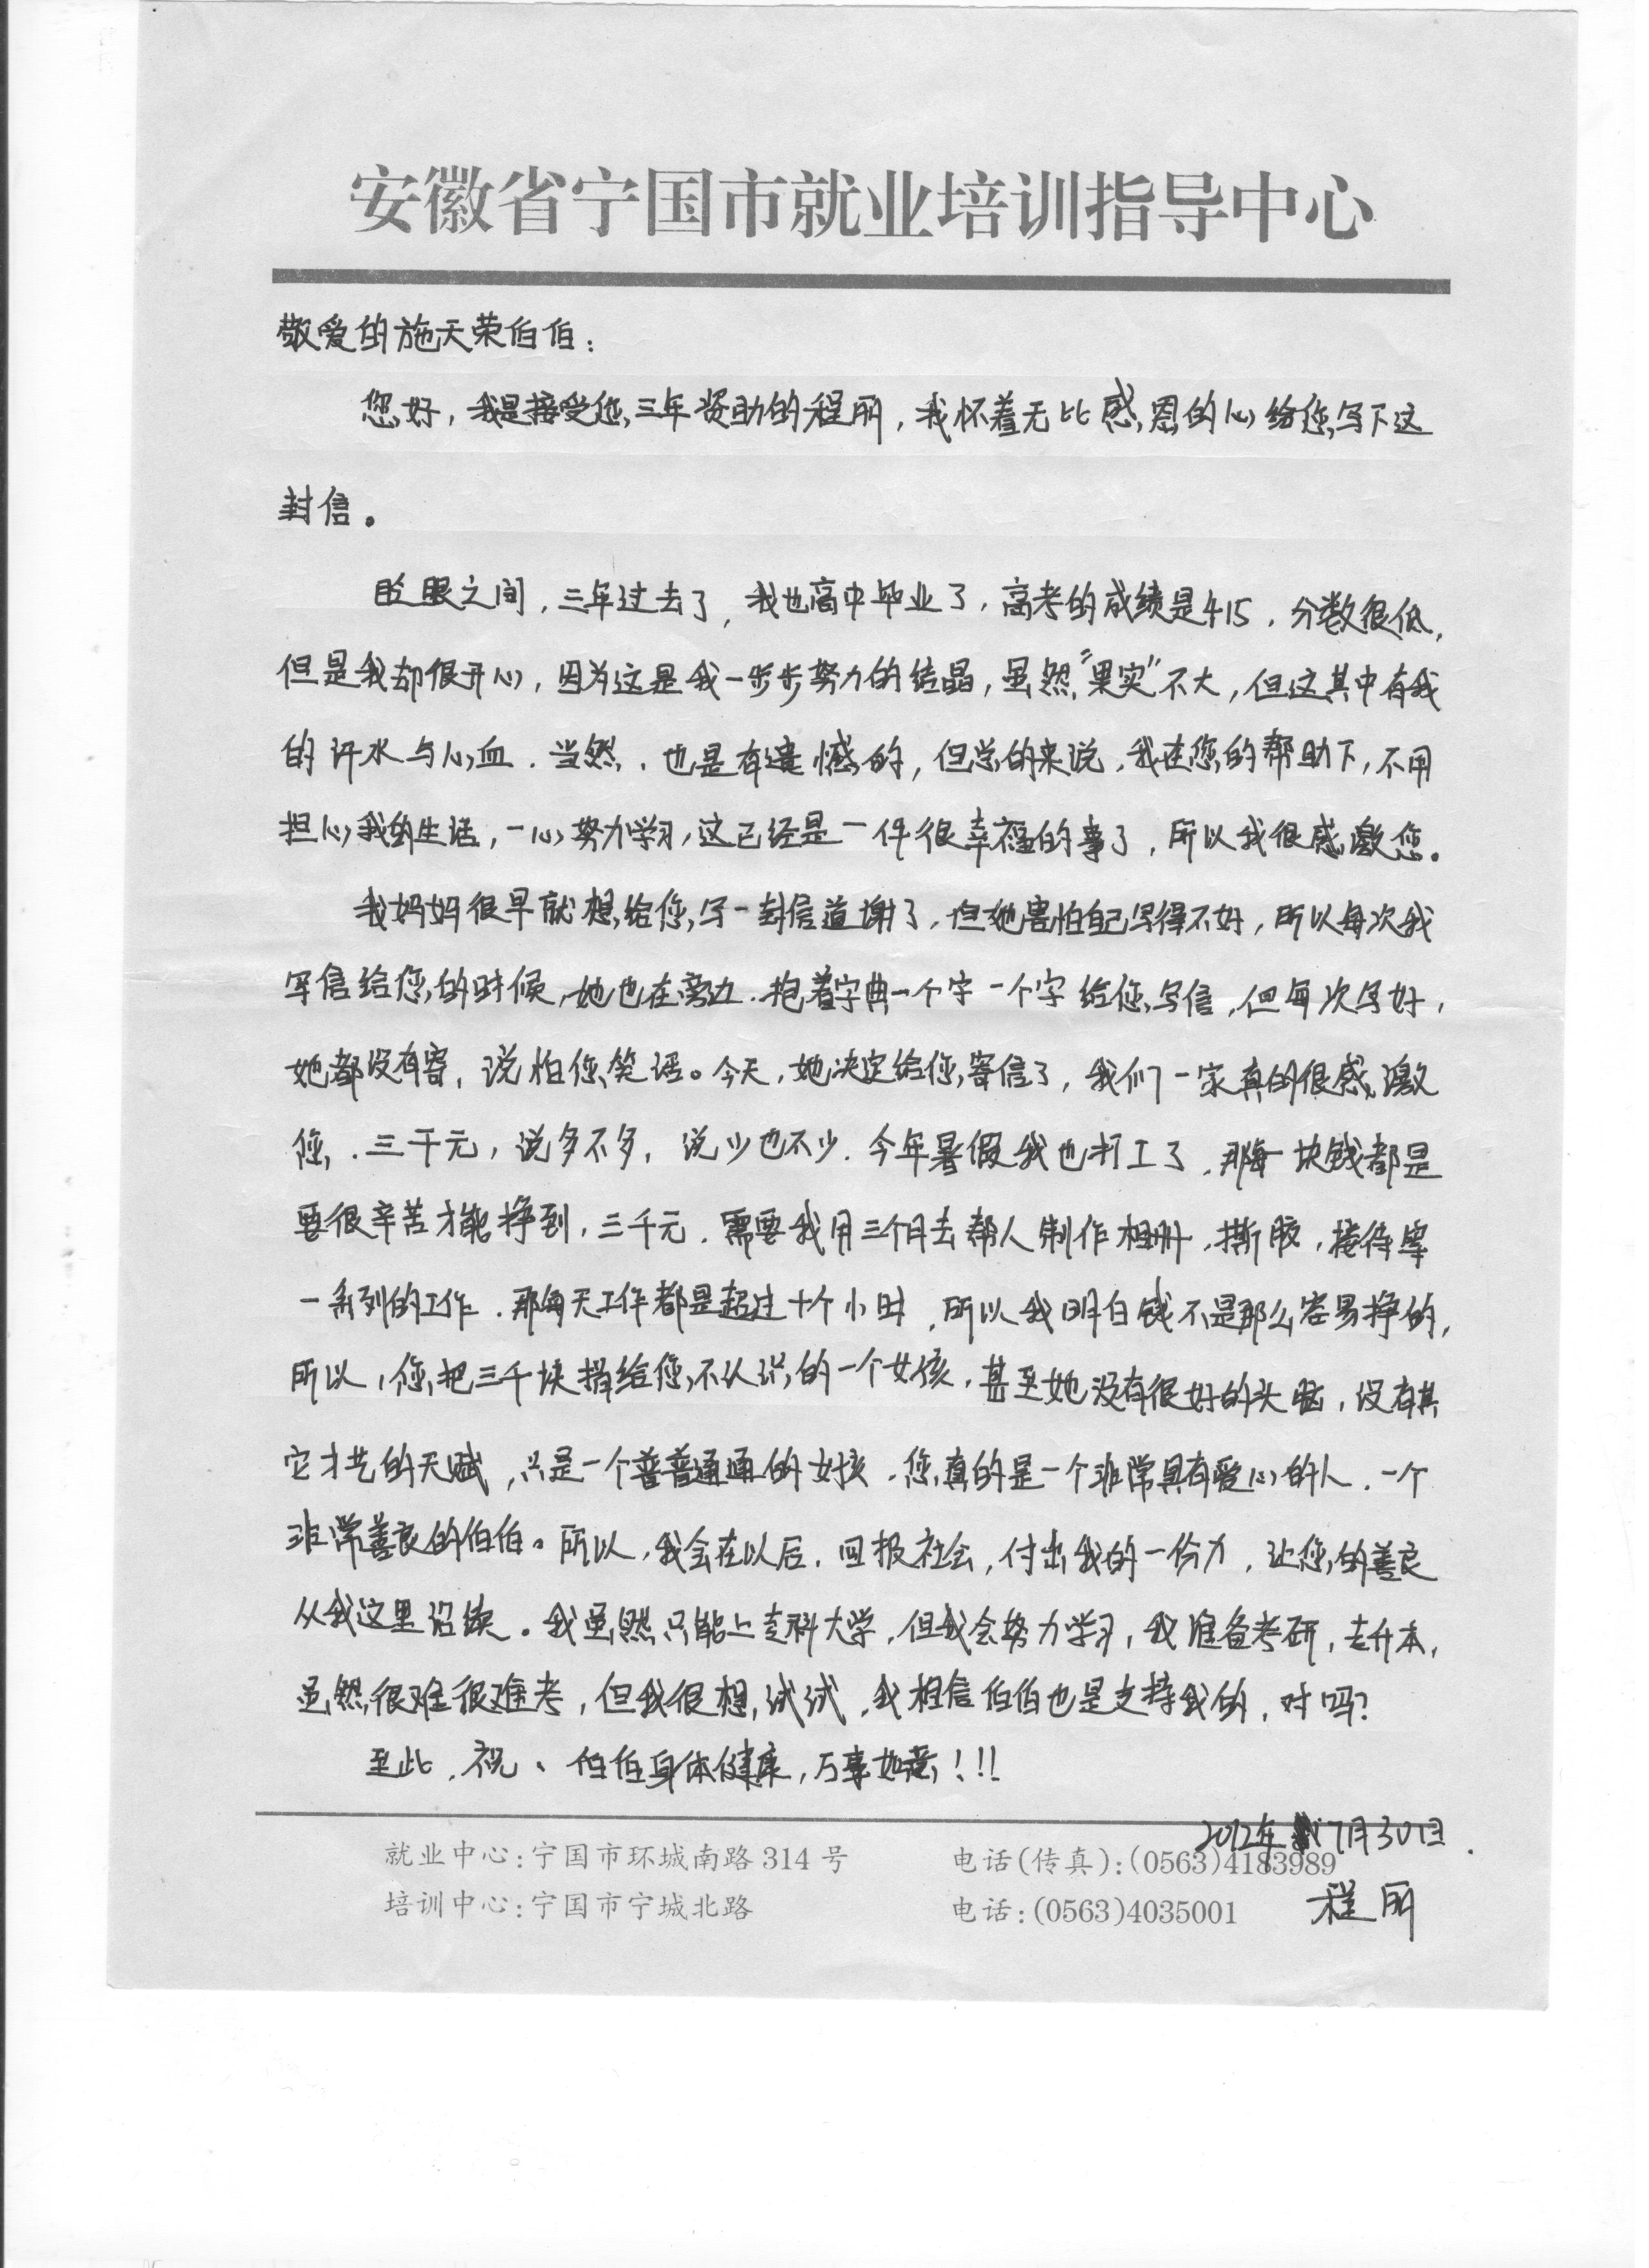 安徽省宁国市就业培训指导中心
敬爱的施天荣伯伯：
您好，我是接受您三年资助的程丽，我怀着无比感恩的心给您写下这
封信。
眨眼之间，三年过去了，我也高中毕业了，高考的成绩是415，分数很低，
但是我却很开心，因为这是我一步步努力的结晶，虽然“果实”不大，但这其中有我
的汗水与心血．当然，也是有遗憾的，但总的来说，我在您的帮助下，不用
担心我的生活，一心努力学习，这已经是一件很幸福的事了，所以我很感激您。
我妈妈很早就想给您写一封信道谢了，但她害怕自己写得不好，所以每次我
写信给您的时候，她也在旁边．抱着字典一个字一个字给您写信，但每次写好，
她都没有寄，说怕您笑话。今天，她决定给您寄信了，我们一家真的很感激
您．三千元，说多不多，说少也不少．今年暑假我也打工了，那每一块钱都是
要很辛苦才能挣到，三千元．需要我用三个月去帮人制作相册，撕胶，接待等
一系列的工作．那每天工作都是超过十个小时，所以我明白钱不是那么容易挣的，
所以，您把三千块捐给您不认识的一个女孩，甚至她没有很好的头脑，没有其
它才艺的天赋，只是一个普普通通的女孩．您真的是一个非常具有爱心的人．一个
非常善良的伯伯。所以，我会在以后，回报社会，付出我的一份力，让您的善良
从我这里延续。我虽然只能上专科大学，但我会努力学习，我准备考研，专升本，
虽然很难很难考，但我很想试试，我相信伯伯也是支持我的，对吗？
至此，祝、伯伯身体健康，万事如意！!!
2012年7月30日．
就业中心：宁国市环城南路314号 电话(传真)：(0563)4183989
培训中心：宁国市宁城北路 电话：(0563)4035001
程丽